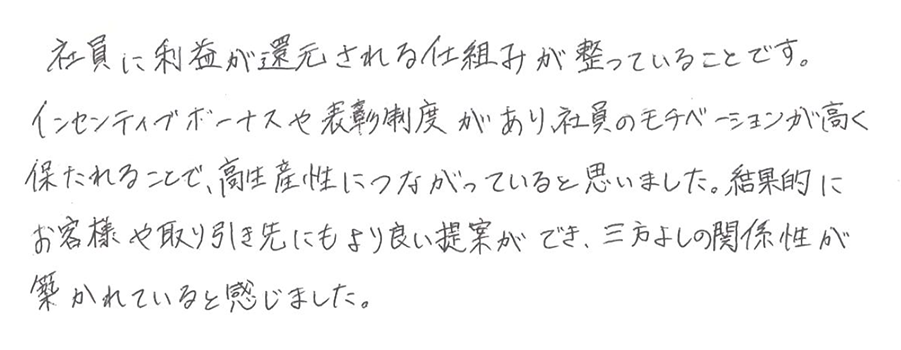 社員に利益が還元される仕組みが整っていることです。
インセンティブボーナスや表彰制度があり、社員のモチベーションが高く
保たれることで、高生産性につながっていると思いました。結果的に
お客様や取り引き先にもより良い提案ができ、三方よしの関係性が
築かれていると感じました。